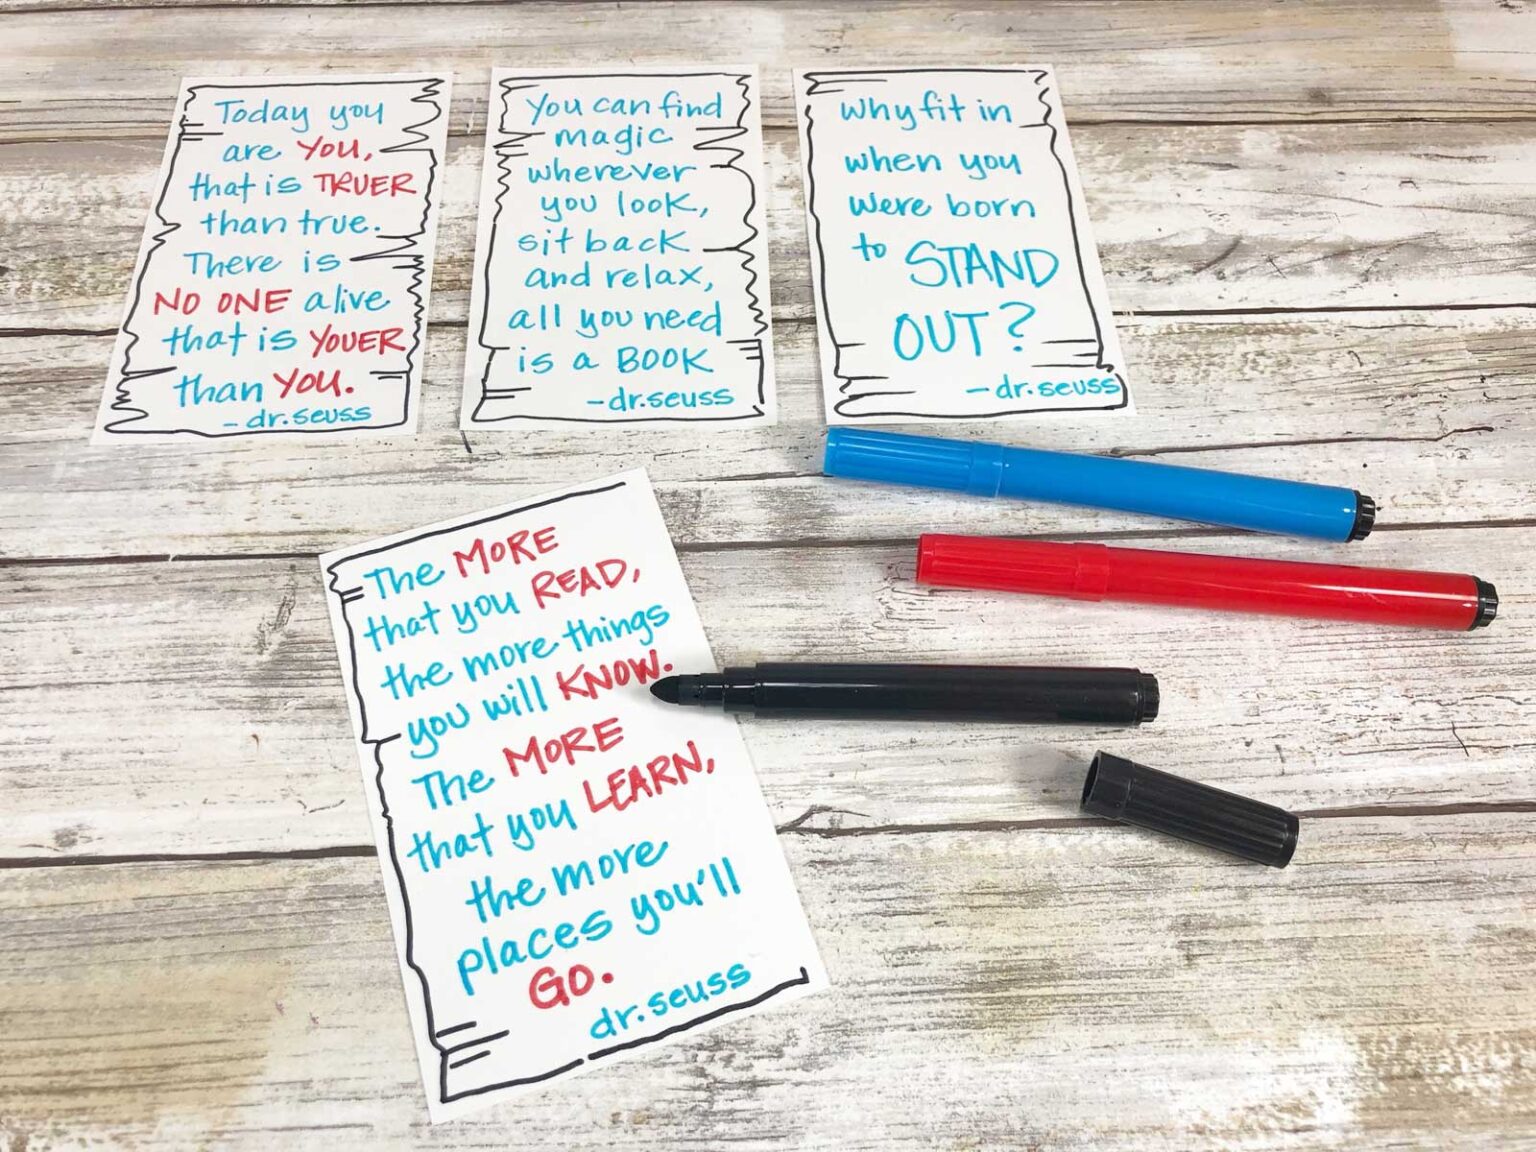 Today you
are YOU,
that is TRUER
than true.
There is
NO ONE alive
that is YOUER
than YOU.
- dr. seuss
You can find
magic
wherever
you look,
sit back
and relax,
all you need
is a BOOK
- dr. seuss
Why fit in
when you
were born
to STAND
OUT?
- dr. seuss
The MORE
that you READ,
the more things
you will KNOW.
The MORE
that you LEARN,
the more
places you'll
GO.
dr. seuss